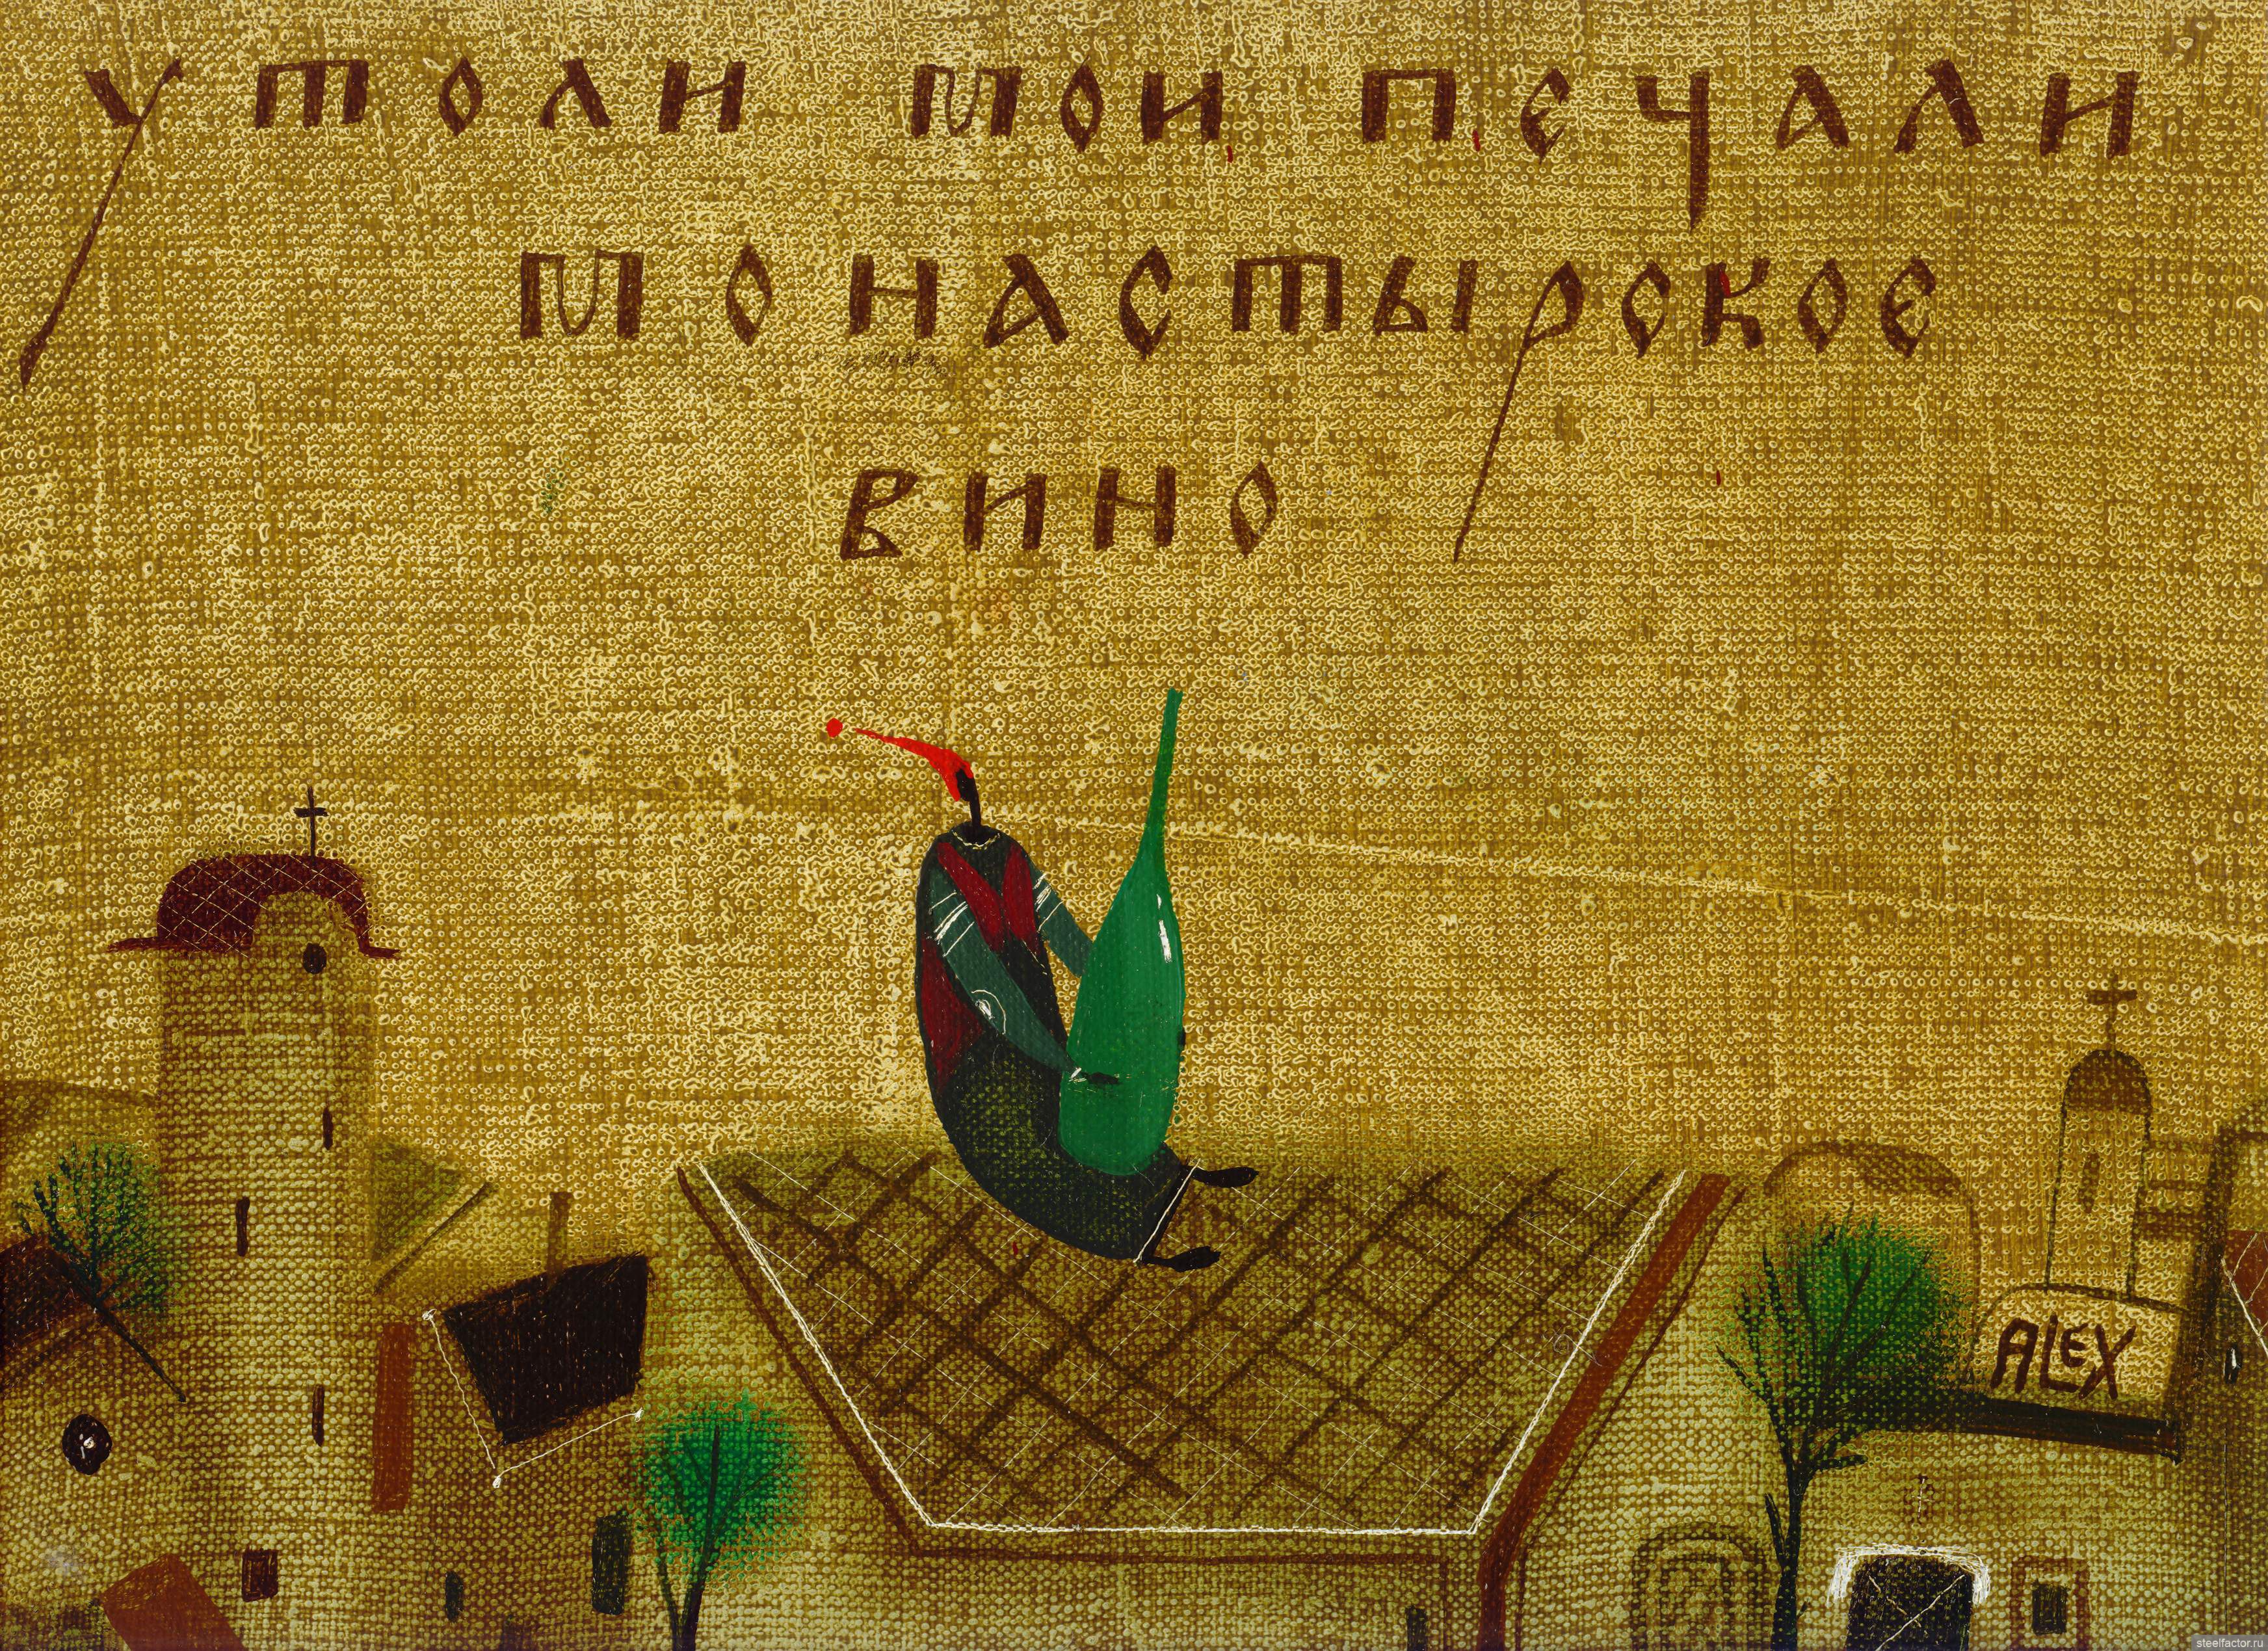 утоли мои печали
монастырское
вино
ALEX
steelfactor.ru